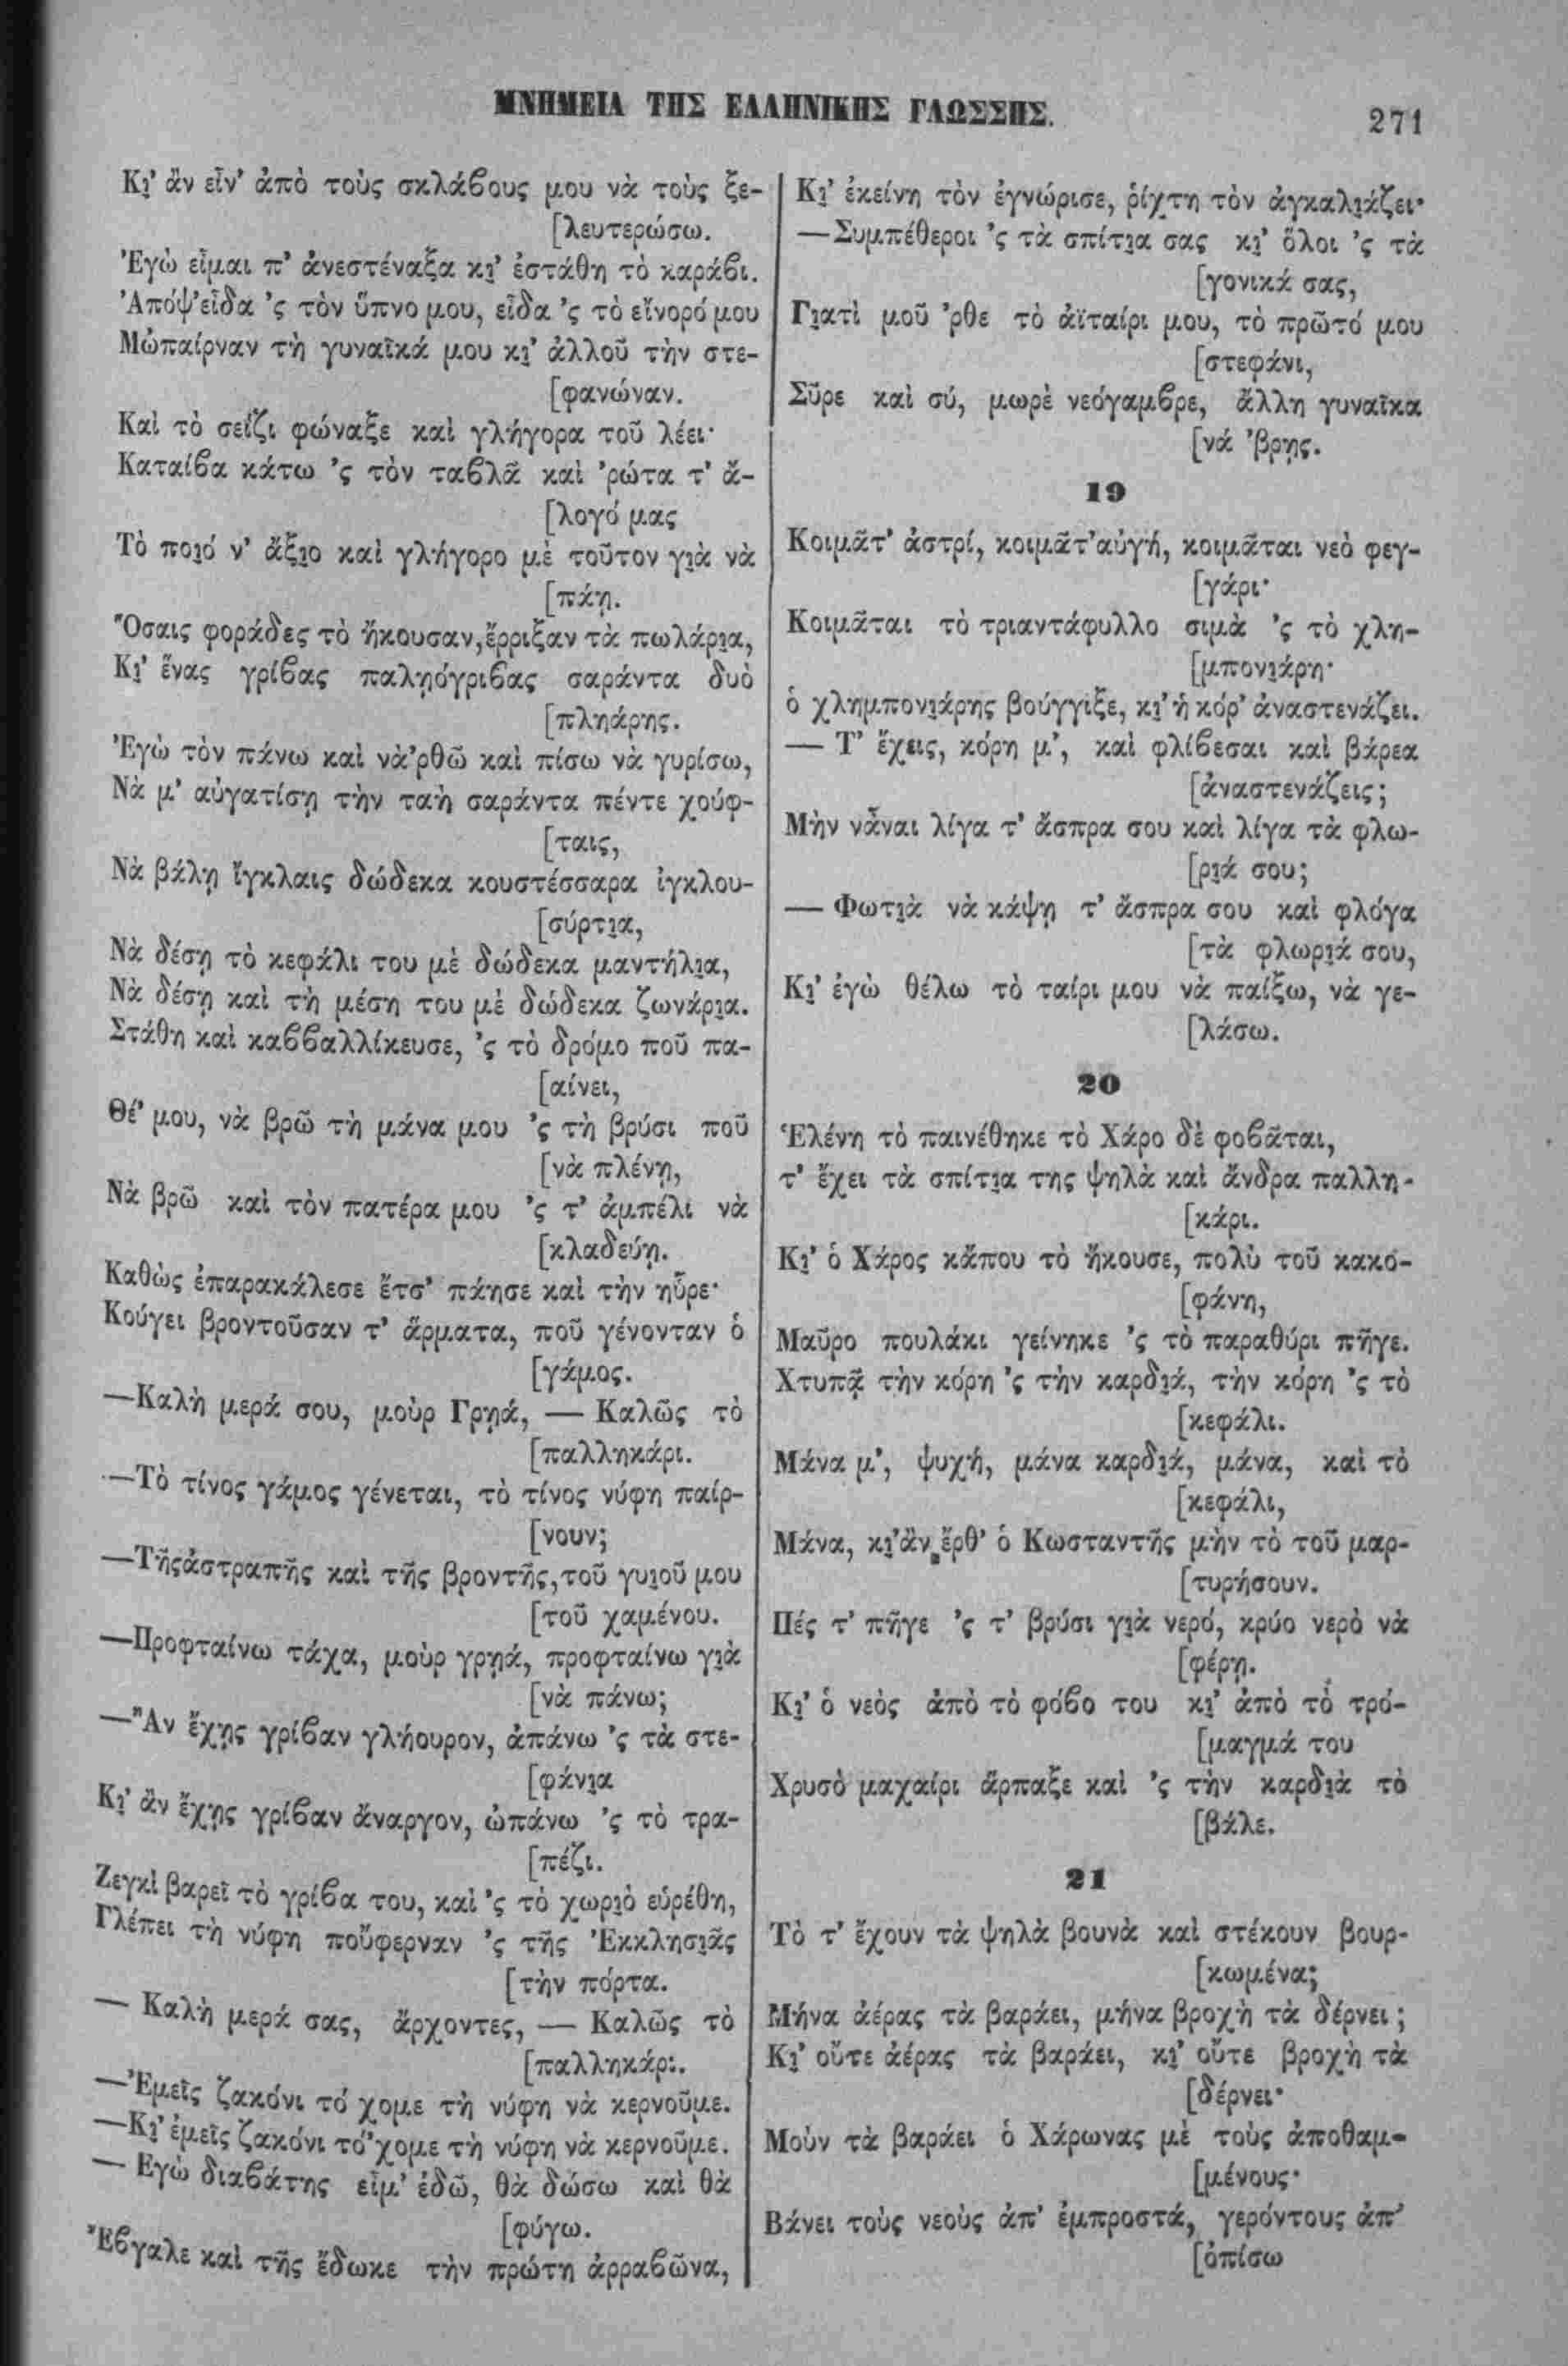 ΜΝΗΜΕΙΑ ΤΗΣ ΕΛΛΗΝΙΚΗΣ ΓΛΩΣΣΗΣ.
271
Κι̯’ ἂν εἶν’ ἀπὸ τοὺς σκλάβους μου νὰ τοὺς ξε-
[λευτερώσω.
’Εγὼ εἶμαι π’ ἀνεστέναξα κι̯’ ἐστάθη τὸ καράβι.
’Απόψ’εἶδα ’ς τὸν ὕπνο μου, εἶδα ’ς τὸ εἴνορό μου
Μὠπαίρναν τὴ γυναῖκά μου κι̯’ ἀλλοῦ τὴν στε-
[φανώναν.
Καὶ τὸ σεΐζι φώναξε καὶ γλήγορα τοῦ λέει·
Καταίβα κάτω ’ς τὸν ταβλᾶ καὶ ’ρώτα τ’ ἄ-
[λογό μας
Τὸ ποι̯ό ν’ ἄξι̯ο καὶ γλήγορο μὲ τοῦτον γι̯ὰ νὰ
[πάῃ.
Ὅσαις φοράδες τὸ ἤκουσαν,ἔρριξαν τὰ πωλάρι̯α,
Κι̯’ ἕνας γρίβας παλῃόγριβας σαράντα δυὸ
[πληάρης.
’Εγὼ τὸν πάνω καὶ νὰ’ρθῶ καὶ πίσω νὰ γυρίσω,
Νὰ μ’ αὐγατίσῃ τὴν ταὴ σαράντα πέντε χούφ-
[ταις,
Νὰ βάλῃ ἴγκλαις δώδεκα κουστέσσαρα ἰγκλου-
[σύρτι̯α,
Νὰ δέσῃ τὸ κεφάλι του μὲ δώδεκα μαντήλι̯α,
Νὰ δέσῃ καὶ τὴ μέση του μὲ δώδεκα ζωνάρι̯α.
Στάθη καὶ καββαλλίκευσε, ’ς τὸ δρόμο ποῦ πα-
[αίνει,
Θέ’ μου, νὰ βρῶ τὴ μάνα μου ’ς τὴ βρύσι ποῦ
[νὰ πλένῃ,
Νὰ βρῶ καὶ τὸν πατέρα μου ’ς τ’ ἀμπέλι νὰ
[κλαδεύῃ.
Καθὼς ἐπαρακάλεσε ἔτσ’ πάησε καὶ τὴν ηὗρε·
Κούγει βροντοῦσαν τ’ ἅρματα, ποῦ γένονταν ὁ
[γάμος.
—Καλὴ μερά σου, μοὺρ Γρῃά, — Καλῶς τὸ
[παλληκάρι.
—Τὸ τίνος γάμος γένεται, τὸ τίνος νύφη παίρ-
[νουν;
—Τῆςἀστραπῆς καὶ τῆς βροντῆς,τοῦ γυι̯οῦ μου
[τοῦ χαμένου.
—Προφταίνω τάχα, μοὺρ γρῃά, προφταίνω γι̯ὰ
[νὰ πάνω;
—Ἂν ἔχῃς γρίβαν γλήουρον, ἀπάνω ’ς τὰ στε-
[φάνι̯α
Κι̯’ ἂν ἔχῃς γρίβαν ἄναργον, ὠπάνω ’ς τὸ τρα-
[πέζι.
Ζεγκὶ βαρεῖ τὸ γρίβα του, καὶ ’ς τὸ χωρι̯ὸ εὑρέθη,
Γλέπει τὴ νύφη ποὔφερναν ’ς τῆς ’Εκκλησι̯ᾶς
[τὴν πόρτα.
— Καλὴ μερά σας, ἄρχοντες, — Καλῶς τὸ
[παλληκάρι.
—’Εμεῖς ζακόνι τό χομε τὴ νύφη νὰ κερνοῦμε.
—Κι̯’ ἐμεῖς ζακόνι τό’χομε τὴ νύφη νὰ κερνοῦμε.
— Εγὼ διαβάτης εἶμ’ ἐδῶ, θὰ δώσω καὶ θὰ
[φύγω.
Ἔβγαλε καὶ τῆς ἔδωκε τὴν πρώτη ἀρραβῶνα,
Κι̯’ ἐκείνη τὸν ἐγνώρισε, ῥίχτη τὸν ἀγκαλι̯άζει·
—Συμπέθεροι ’ς τὰ σπίτι̯α σας κι̯’ ὅλοι ’ς τὰ
[γονικά σας,
Γι̯ατὶ μοῦ ’ρθε τὸ ἀϊταίρι μου, τὸ πρῶτό μου
[στεφάνι,
Σῦρε καὶ σύ, μωρὲ νεόγαμβρε, ἄλλη γυναῖκα
[νά ’βρῃς.
19
Κοιμᾶτ’ ἀστρί, κοιμᾶτ’αὐγή, κοιμᾶται νεὸ φεγ-
[γάρι·
Κοιμᾶται τὸ τριαντάφυλλο σιμὰ ’ς τὸ χλη-
[μπονι̯άρη·
ὁ χλημπονι̯άρης βούγγιξε, κι̯’ ἡ κόρ’ ἀναστενάζει.
— Τ’ ἔχεις, κόρη μ’, καὶ φλίβεσαι καὶ βάρεα
[ἀναστενάζεις;
Μὴν νἆναι λίγα τ’ ἄσπρα σου καὶ λίγα τὰ φλω-
[ρι̯ά σου;
— Φωτι̯ὰ νὰ κάψῃ τ’ ἄσπρα σου καὶ φλόγα
[τὰ φλωρι̯ά σου,
Κι̯’ ἐγὼ θέλω τὸ ταίρι μου νὰ παίξω, νὰ γε-
[λάσω.
20
Ἑλένη τὸ παινέθηκε τὸ Χάρο δὲ φοβᾶται,
τ’ ἔχει τὰ σπίτι̯α της ψηλὰ καὶ ἄνδρα παλλη-
[κάρι.
Κι̯’ ὁ Χάρος κἄπου τὸ ἤκουσε, πολὺ τοῦ κακό-
[φάνη,
Μαῦρο πουλάκι γείνηκε ’ς τὸ παραθύρι πῆγε.
Χτυπᾷ τὴν κόρη ’ς τὴν καρδι̯ά, τὴν κόρη ’ς τὸ
[κεφάλι.
Μάνα μ’, ψυχή, μάνα καρδι̯ά, μάνα, καὶ τὸ
[κεφάλι,
Μάνα, κι̯’ἂν ἔρθ’ ὁ Κωσταντῆς μὴν τὸ τοῦ μαρ-
[τυρήσουν.
Πές τ’ πῆγε ’ς τ’ βρύσι γι̯ὰ νερό, κρύο νερὸ νὰ
[φέρῃ.
Κι̯’ ὁ νεὸς ἀπὸ τὸ φόβο του κι̯’ ἀπὸ τὸ τρό-
[μαγμά του
Χρυσὸ μαχαίρι ἅρπαξε καὶ ’ς τὴν καρδι̯ὰ τὸ
[βάλε.
21
Τὸ τ’ ἔχουν τὰ ψηλὰ βουνὰ καὶ στέκουν βουρ-
[κωμένα;
Μήνα ἀέρας τὰ βαράει, μήνα βροχὴ τὰ δέρνει ;
Κι̯’ οὔτε ἀέρας τὰ βαράει, κι̯’ οὔτε βροχὴ τὰ
[δέρνει·
Μοὺν τὰ βαράει ὁ Χάρωνας μὲ τοὺς ἀποθαμ-
[μένους·
Βάνει τοὺς νεοὺς ἀπ’ ἐμπροστά, γερόντους ἀπ’
[ὀπίσω